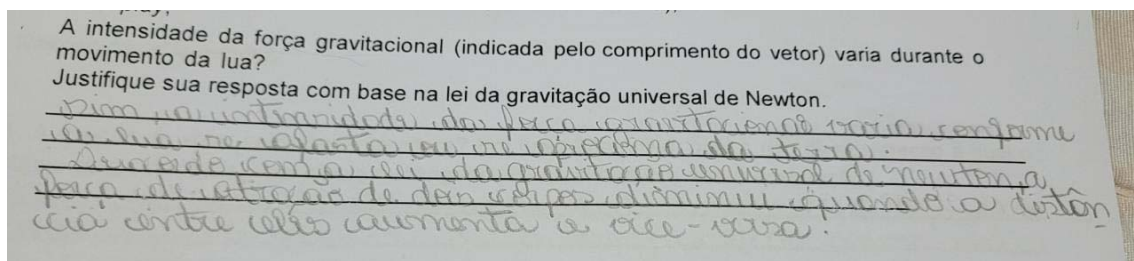 A intensidade da força gravitacional (indicada pelo comprimento do vetor) varia durante o
movimento da lua?
Justifique sua resposta com base na lei da gravitação universal de Newton.
Sim, a intensidade da força gravitacional varia conforme
a lua se afasta ou se aproxima da terra.
De acordo com a lei da gravitação universal de newton, a
força de atração de dois corpos diminui quando a distân
cia entre eles aumenta e vice-versa.